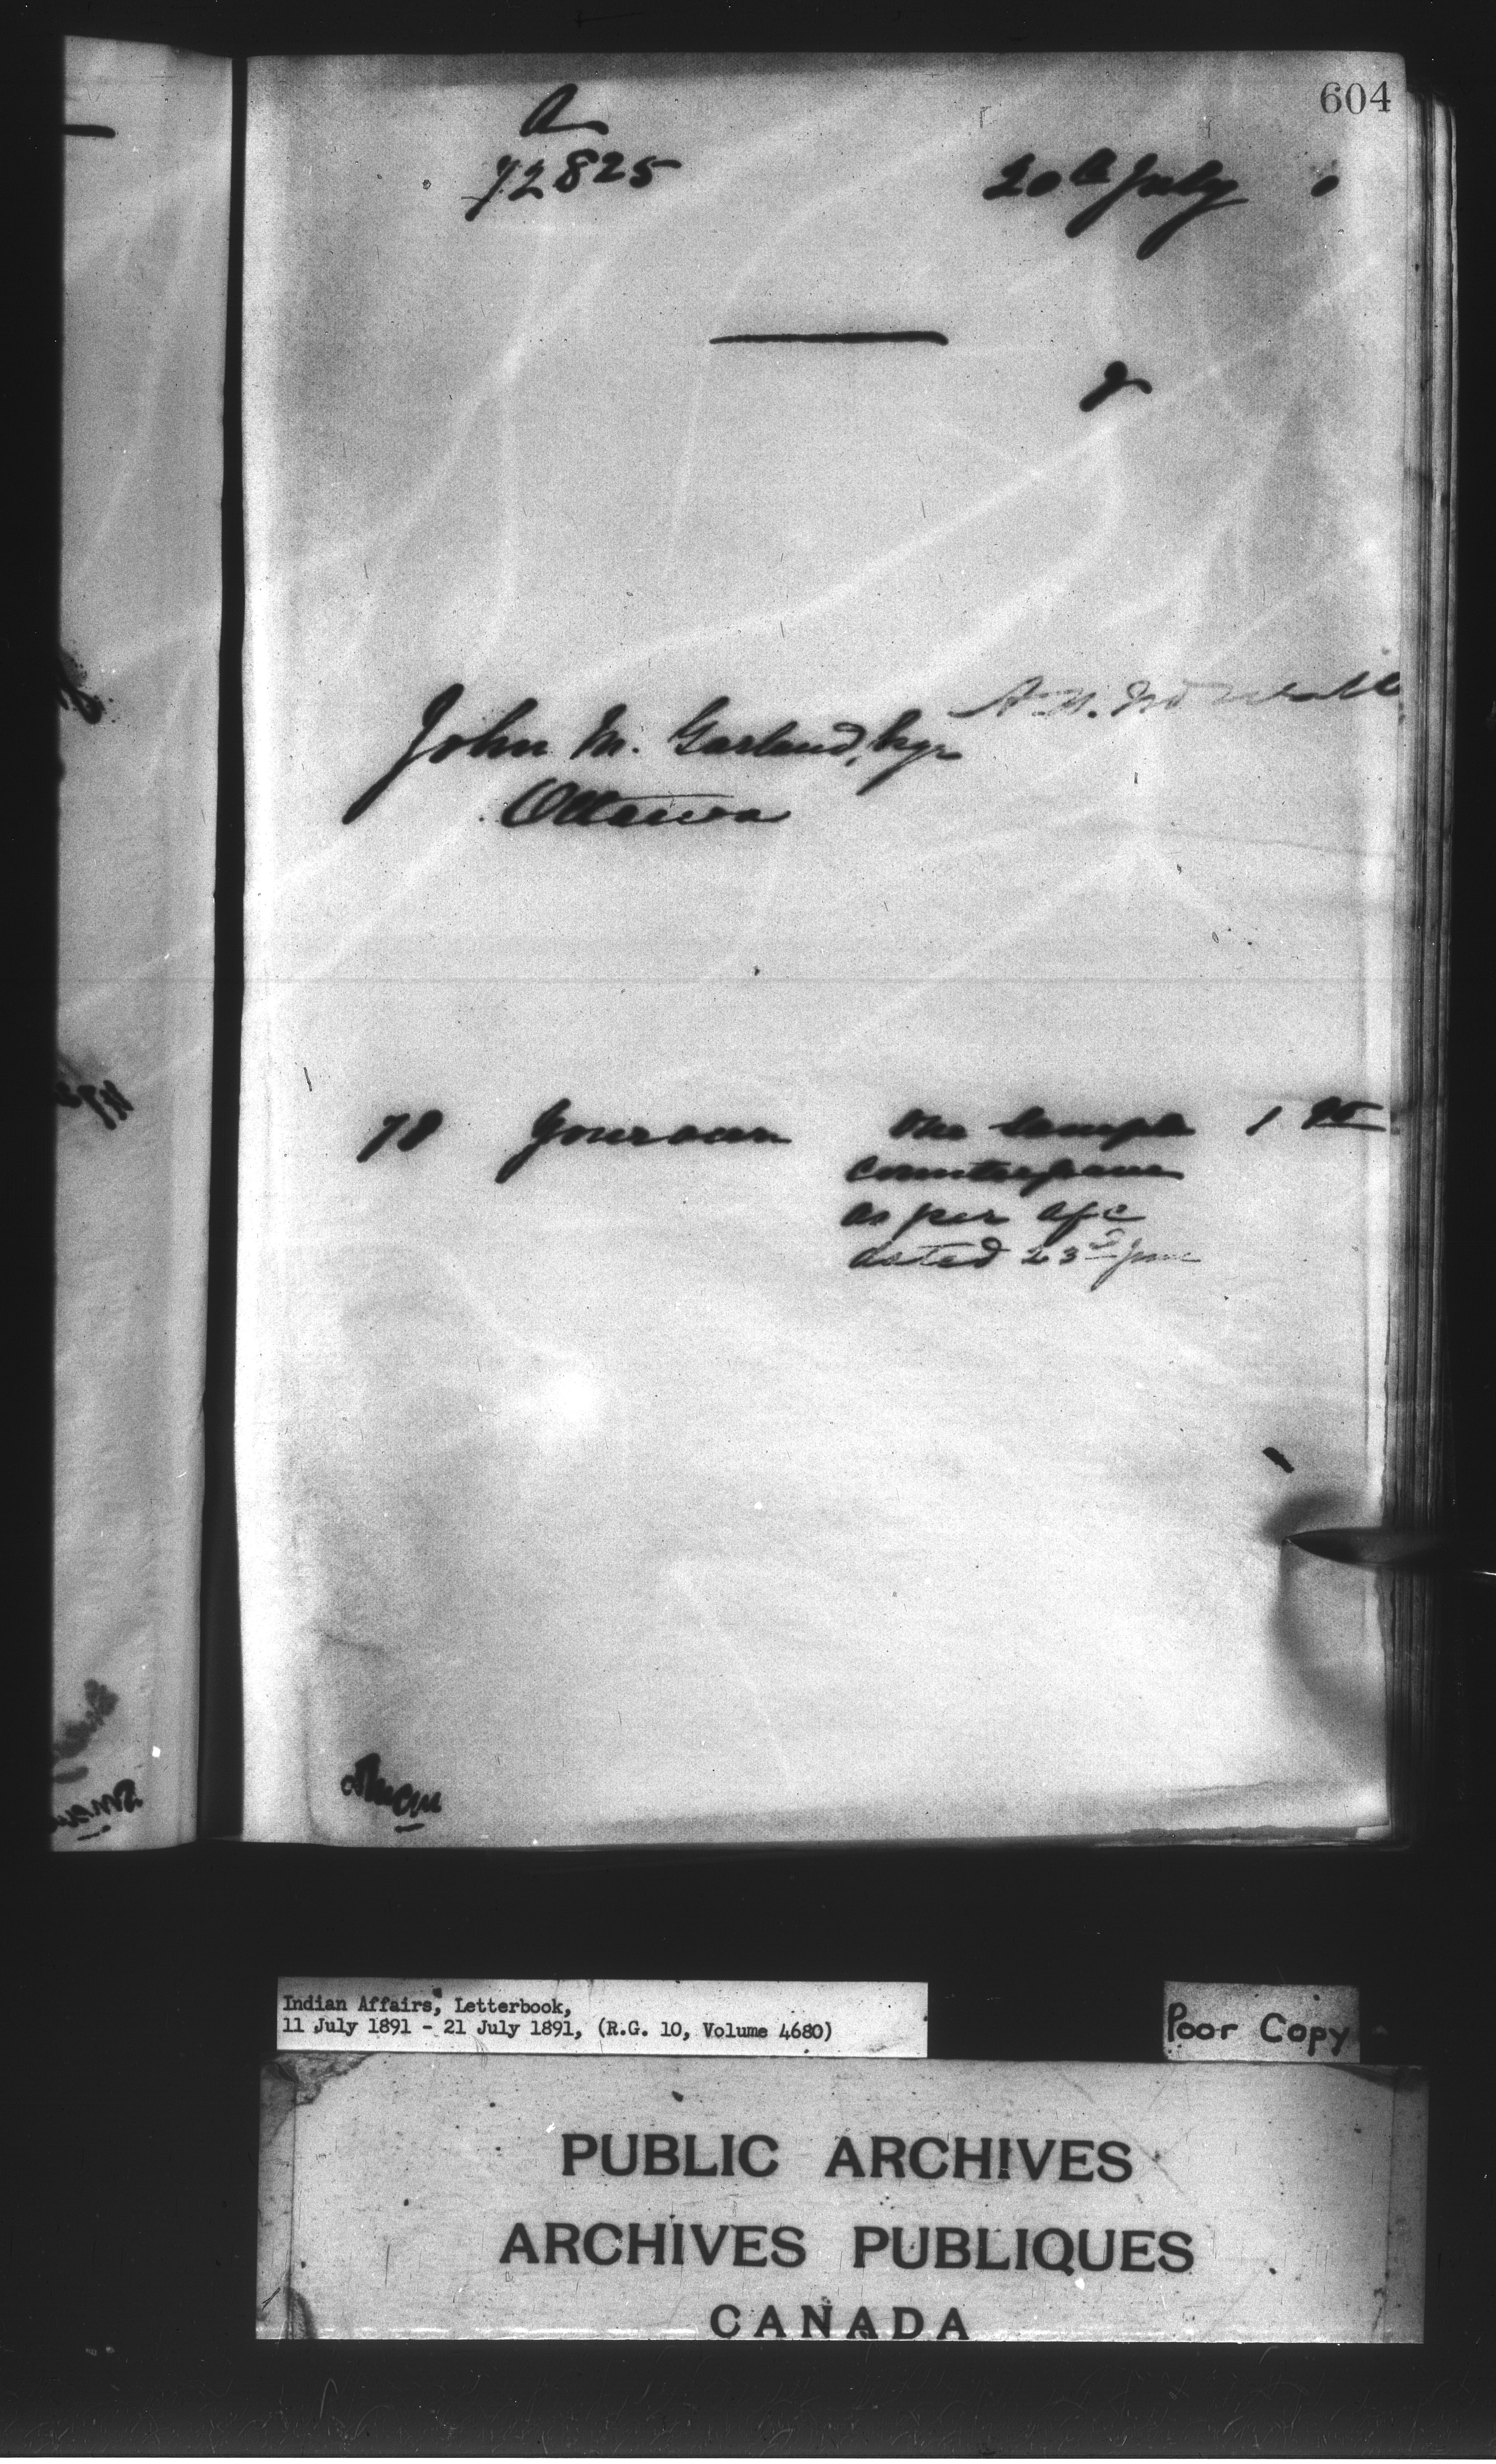 604
A
72825
20th July
John M. Garland, Esqr
Ottawa
78 Your own One Sample 1
Counterpane
as per a/c
dated 23d June
Indian Affairs, Letterbook,
11 July 1891 - 21 July 1891, (R.G. 10, Volume 4680)
Poor Copy
PUBLIC ARCHIVES
ARCHIVES PUBLIQUES
CANADA